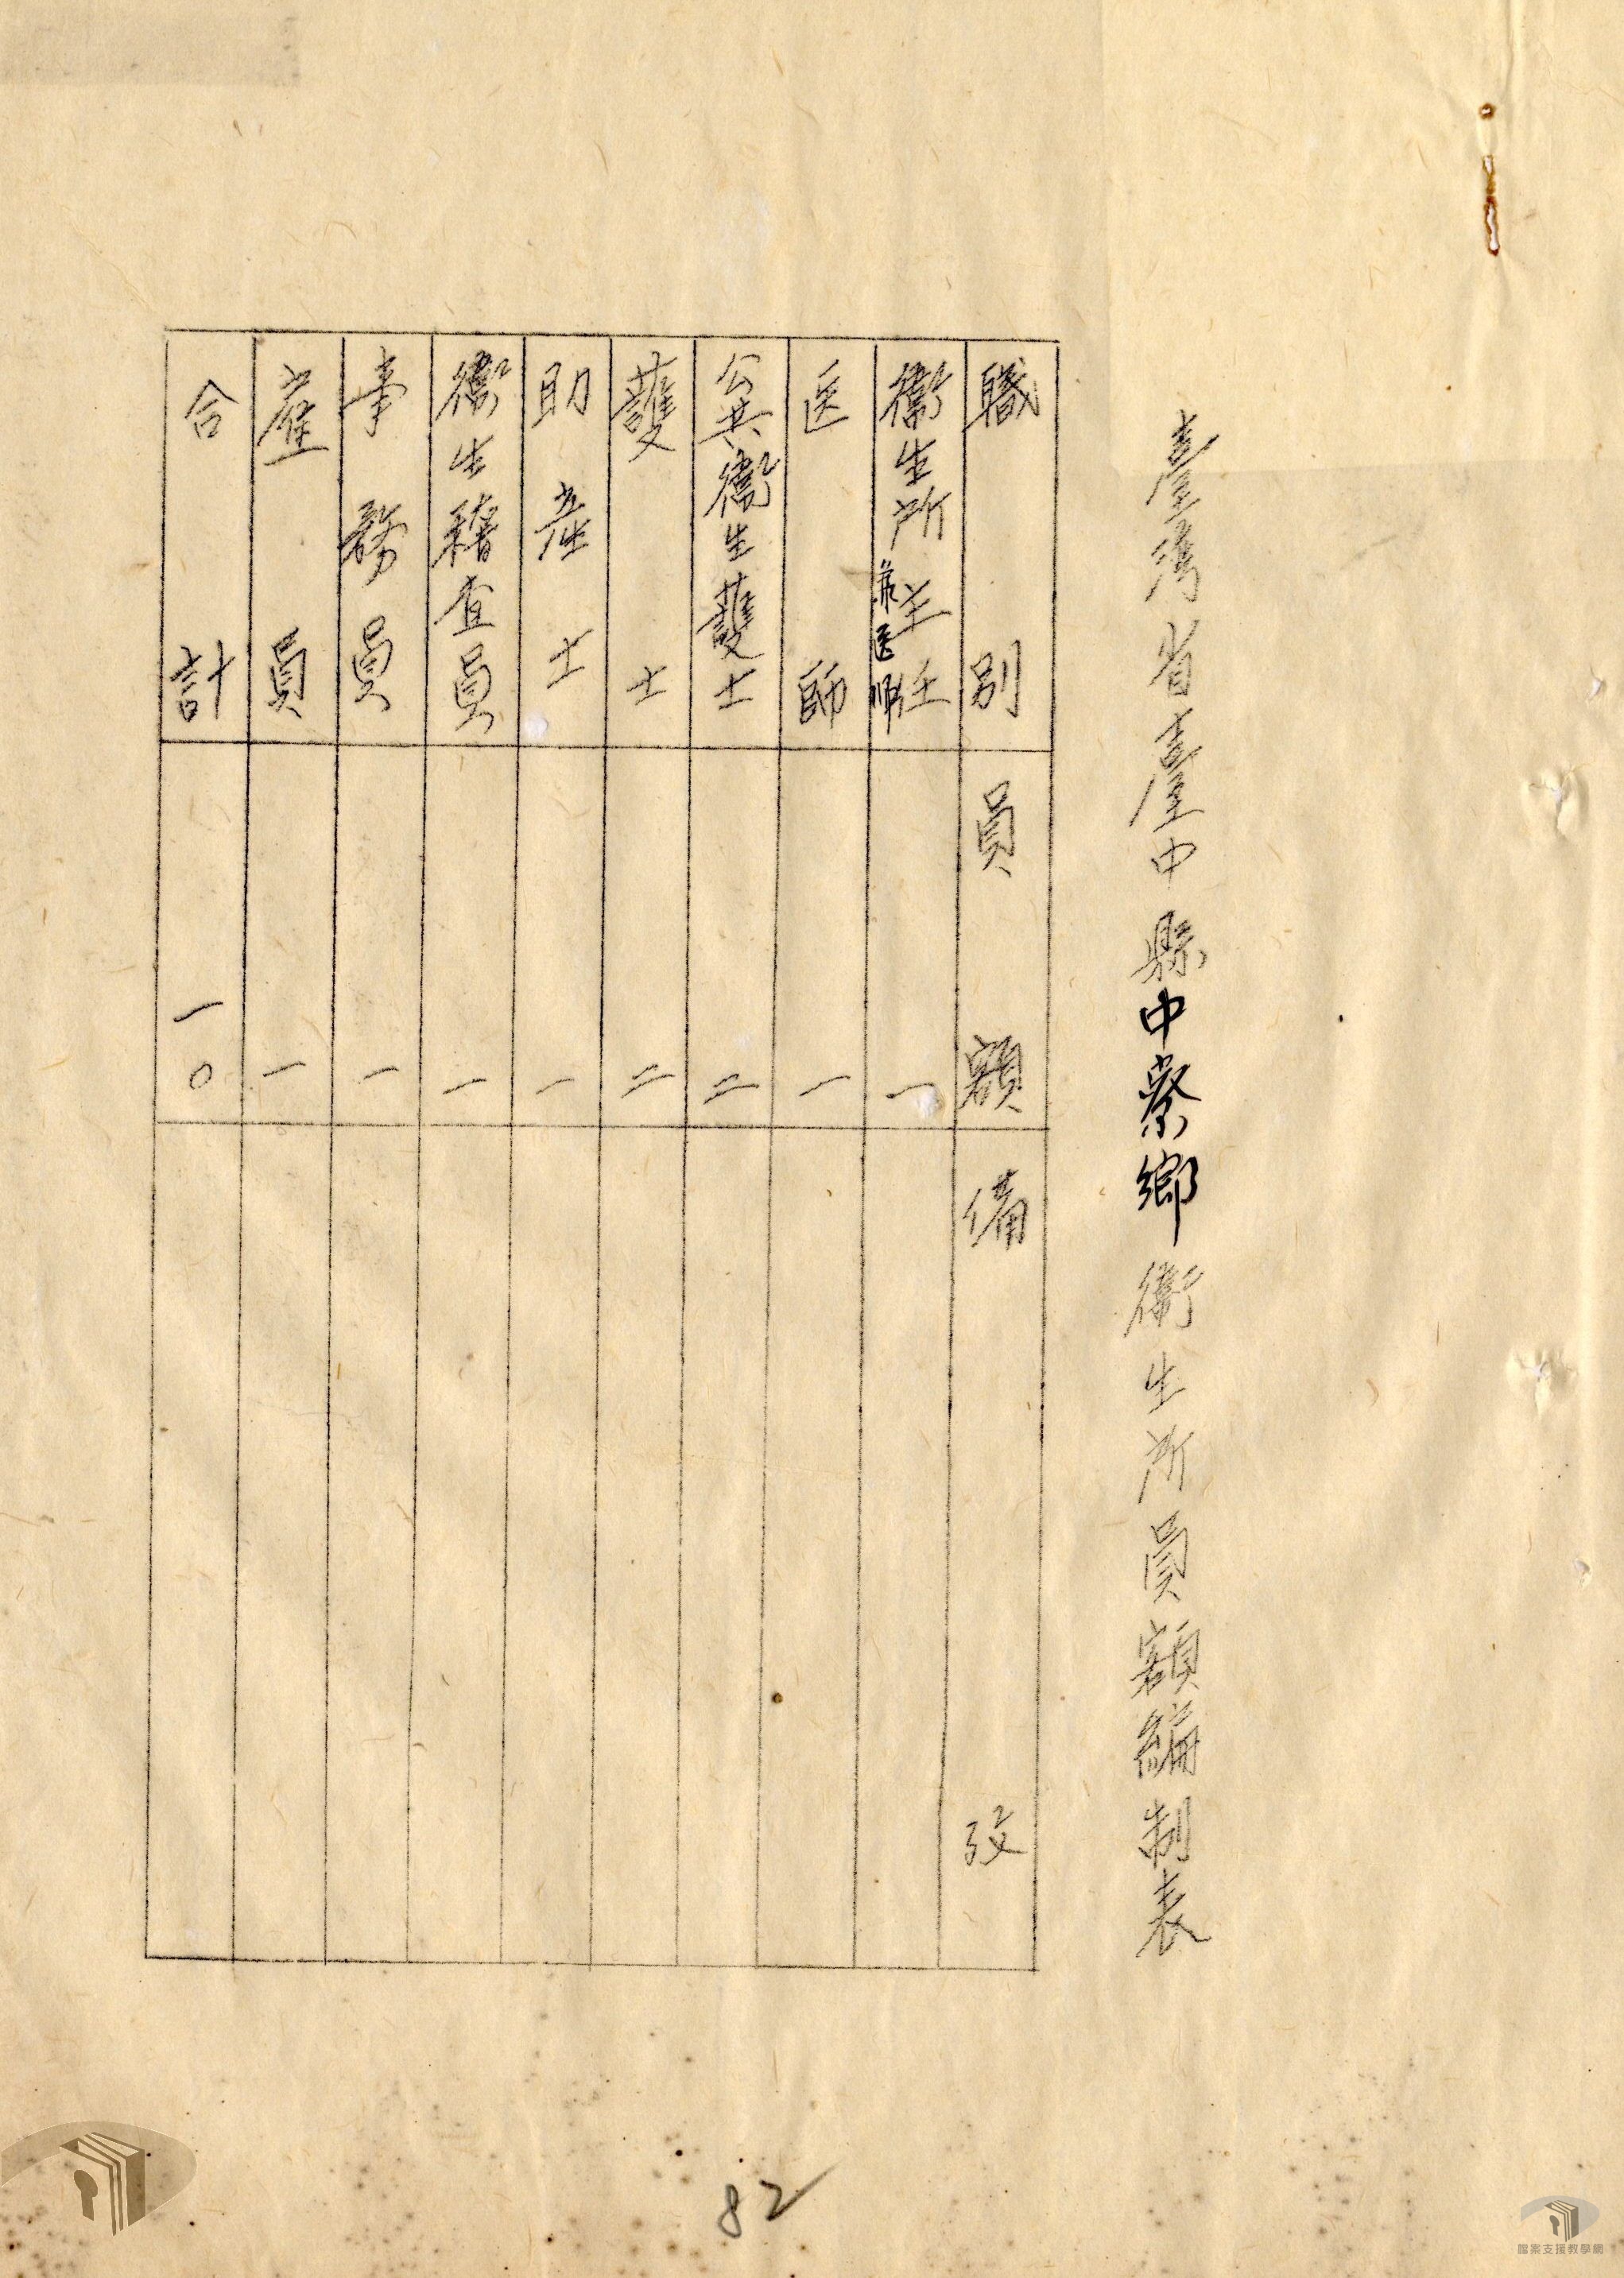 臺灣省臺中縣中寮鄉衛生所員額編制表
職別 員額 備攷
衛生所主任 兼医师 一
医師 一
公共衛生護士 二
護士 二
助產士 一
衛生稽查員 一
事務員 一
雇員 一
合計 一〇
82
檔案支援教學網